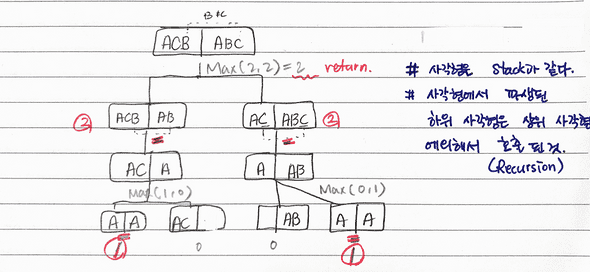 B≠C
ACB ABC
Max(2,2)=2 return.
# 사각형은 Stack과 같다.
# 사각형에서 파생된
하위 사각형은 상위 사각형
에 의해서 호출 된 것.
(Recursion)
② ACB AB = AC ABC = ②
AC A A AB
Max(1,0) Max(0,1)
A A AC AB A A
= =
① 0 0 ①